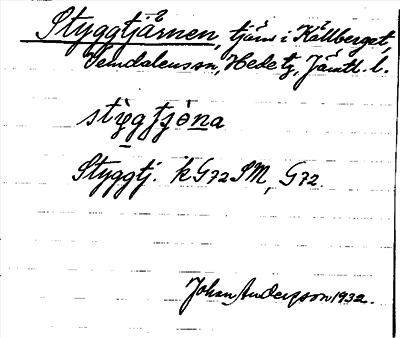 Styggtjärnen, tjärn i Källberget,
Vemdalens sn, Hede tg, Jämtl. l.
stỳgtjὂna
Styggtj. kG72SM, G72.
Johan Anderson 1932.